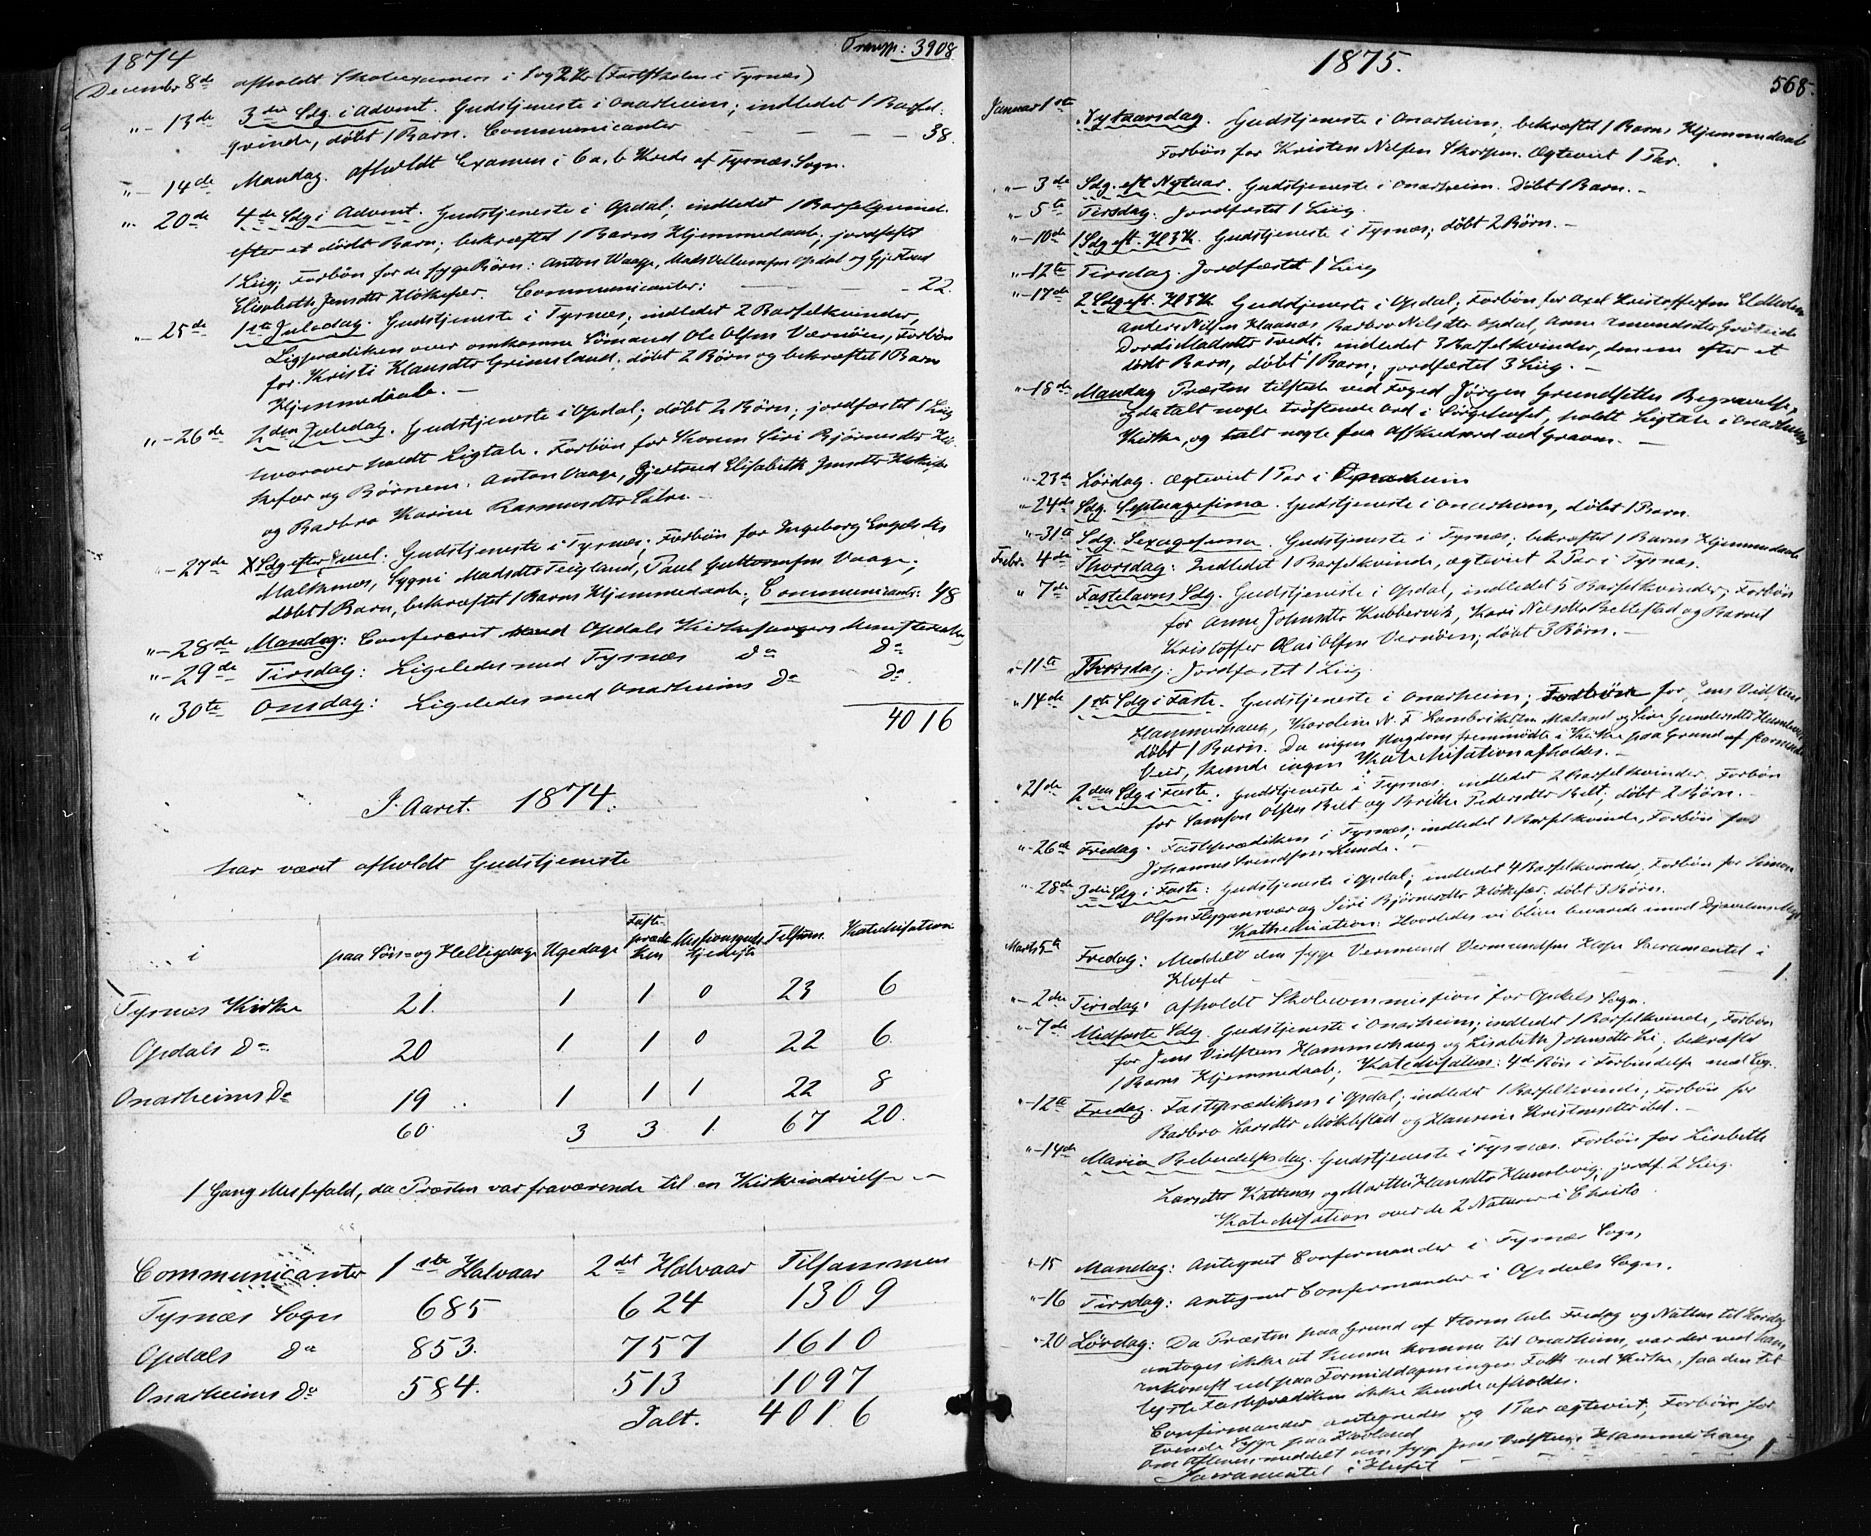 1874
Transp: 3908
December 8de afholdt Skoleexamen i Sog 2 Kr (Fastskolen i Tysnæs)
" - 13de 3die Sdg. i Advent. Gudstjeneste i Onarheim; indledet 1 Barsel-
qvinde, døbt 1 Barn. Communicanter — — — 38.
" - 14de Mandag. afholdt Examen i 6 a, b Kreds af Tysnæs Sogn.
" 20de 4de Sdg i Advent. Gudstjeneste i Opdal; indledet 1 Barselqvind.
efter et dødt Barn; bekræftet 1 Barns Hjemmedaab; jordfæstet
1 Liig; Forbøn for de syge Børn: Anton Waage, Mads Vellumsen Opdal og Gjertrud
Elisabeth Jensdtr Flökefær. Communicanter: — — 22.
" - 25de 1ste Juledag. Gudstjeneste i Tysnæs; indledet 2 Barselkvinder,
Ligprædiken over omkomne Sömand Ole Olsen Vernöen, Forbön
for Kristi Hansdtr Grimsland; döbt 2 Börn og bekræftet 1 Barn
Hjemmedaab. —
" - 26de 2den Juledag. Gudstjeneste i Opdal; döbt 2 Börn; jordfæstet 1 Liig
hvorover holdt Ligtale. Forbön for Konen Siri Björnesdtr Flö-
kefær og Börnene: Anton Vaage, Gjertrud Elisabeth Jensdtr
og Barbro Karine Rasmusdtr —
" - 27de X Sdg efter Juul. Gudstjeneste i Tysnæs; Forbön for Ingeborg Engelsdtr
Malkenes, Sygni Madsdtr Teigland, Paul Guttormsen Vaage;
döbt 1 Barn, bekræftet 1 Barns Hjemmedaab; Communicant: 48
" - 28de Mandag: Confereret med Opdals Kirkesangers
" - 29de Tirsdag: Ligeledes med Tysnæs do do
" 30te Onsdag: Ligeledes med Onarheims do do.
4016
I Aaret 1874.
har været afholdt Gudstjeneste
i | paa Sön- og Helligdage | Ugedage | Fasteprædiken | Missionsgudstjeneste | Tilsam. | Katechisation
Tysnæs Kirke 21. 1 1 0 23 6
Opdals do 20 1 1 0 22 6
Onarheims do 19 1 1 1 22 8
60 3 3 1 67 20.
1 Gang Messefald, da Præsten var fraværende til en Kirkeindvielse —
Communicanter 1ste Halvaar 2det Halvaar Tilsammen
Tysnæs Sogn 685 624 1309
Opdals do 853. 757 1610
Onarheims do 584. 513 1097
Ialt. 4016
1875.
568.
Januar 1ste Nytaarsdag. Gudstjeneste i Onarheim; bekræftet 1 Barns Hjemmedaab
Forbön for Kristen Nilsen Skorpen. Ægteviet 1 Par.
" - 3de Sdg. eft Nytaar. Gudstjeneste i Onarheim. Döbt 1 Barn. —
" - 5te Tirsdag: Jordfæstet 1 Liig.
" - 10de 1 Sdg eft. H3K. Gudstjeneste i Tysnæs; döbt 2 Börn. —
" - 12te Tirsdag. Jordfæstet 1 Liig
" - 17de 2 Sdg eft. H3K Gudstjeneste i Opdal; Forbön for Axel Kristoffersen
Anders Nilsen Haanæs Barbro Nilsdtr Opdal, Anne Amundsdtr
Dordi Madsdtr Tvedt; indledet 3 Barselkvinder, den ene efter et
dödt Barn, döbt 1 Barn; jordfæstet 3 Liig. —
" - 18de Mandag Præsten tilstede ved Foged Jörgen Grundseths Begravelse,
og da talt nogle tröstende Ord i Sörgehuset, holdt Ligtale i Onarheims
Kirke, og talt nogle faa Afskedsord ved Graven. —
" - 23de Lördag. Ægteviet 1 Par i Onarheim
" - 24de Sdg. Septuagesima. Gudstjeneste i Onarheim, döbt 1 Barn.
" - 31te Sdg. Sexagesima. Gudstjeneste i Tysnæs; bekræftet 1 Barns Hjemmedaab
Febr. 4de Thorsdag: Indledet 1 Barselkvinde, ægteviet 2 Par i Tysnæs.
" 7de Fastelavns Sdg. Gudstjeneste i Opdal, indledet 5 Barselkvinder, Forbön
for Anne Johnsdtr Hubbervik, Kari Nilsdtr Beltestad og Barnet
Kristoffer Olai Olsen Vernöen; döbt 3 Börn. —
" - 11te Thorsdag: Jordfæstet 1 Liig.
" - 14de 1ste Sdg i Faste. Gudstjeneste i Onarheim; Forbön for Jens
Hammerhaug, Karoline N. F. Maland og Siri Gundersdtr
döbt 1 Barn. Da ingen Ungdom fremmödte i Kirke paa Grund af
Veir, kunde ingen Katechisation afholdes. —
" 21de 2den Sdg i Faste. Gudstjeneste i Tysnæs, indledet 2 Barselkvinder, Forbön
for Samson Olsen Belt og Brithe Pedersdtr Belt; döbt 2 Börn. —
" - 26de Fredag: Fasteprædiken i Tysnæs; indledet 1 Barselkvinde, Forbön for
Johannes Sunde. —
" - 28de 3die Sdg i Faste: Gudstjeneste i Opdal; indledet 4 Barselkvinder, Forbön for Simon
Olsen Flygansvær og Siri Björnesdtr Flökefær, döbt 3 Börn.
Kathechisation: Hvorledes vi blive bevarede imod Djævelens Magt
Marts 5te Fredag: Meddelt den syge Vermund Vermundsen Hope Sacramentet i
Huset — — — 1.
" - 2den Tirsdag: afholdt Skolecommission for Opdals Sogn.
" - 7de Midfaste Sdg. Gudstjeneste i Onarheim; indledet 1 Barselkvinde, Forbön
for Jens Hammerhaug og Lisabeth Johnsdtr Li; bekræftet
1 Barns Hjemmedaab, Katechisation: 4de Bön i Forbindelse med
" - 12te Fredag. Fasteprædiken i Opdal; indledet 1 Barselkvinde, Forbön for
Barbro Larsdtr Möklestad og Hansine Kristensdtr ibd. —
" - 14de Maria Bebudelsesdag. Gudstjeneste i Tysnæs. Forbön for Lisbeth
Larsdtr Kattenæs og Marthe Hansdtr Humlevig; jordf. 2 Liig.
Katechisation over de 2 Naturer i Christo.
" - 15 Mandag: Antegnet Confirmander i Tysnæs Sogn,
" - 16 Tirsdag: Antegnet Confirmander i Opdals Sogn.
" - 20 Lördag: Da Præsten paa Grund af Storm hele Fredag og Natten til Lördag
antoges ikke at kunne komme til Onarheim, var der ved hans
Ankomst ud paa Formiddagen ingen Folk ved Kirke, saa den til
Fasteprædiken ikke kunde afholdes.
Confirmander antegnedes og 1 Par ægteviet, Forbön for
tvende Syge paa
Om Aftenen meddelt den syge Jens Hammerhaug
Sacramentet i Huset — — — 1